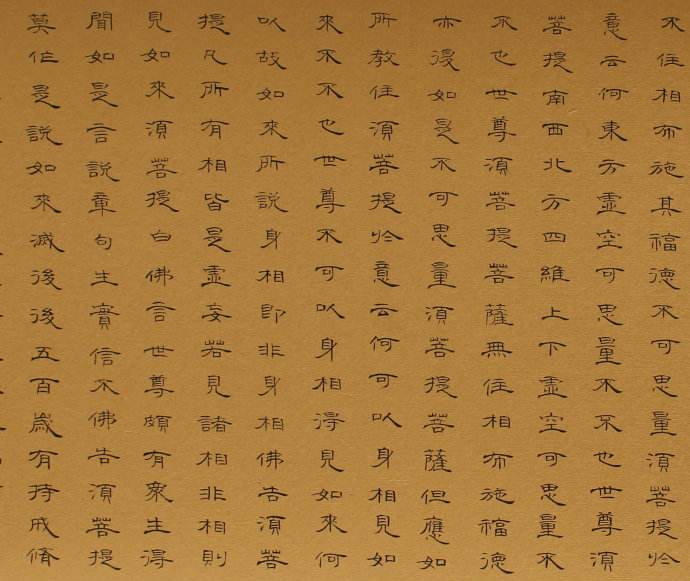 不住相布施其福德不可思量須菩提於
意云何東方虛空可思量不不也世尊須
菩提南西北方四維上下虛空可思量不
不也世尊須菩提菩薩無住相布施福德
亦復如是不可思量須菩提菩薩但應如
所教住須菩提於意云何可以身相見如
來不不也世尊不可以身相得見如來何
以故如來所說身相即非身相佛告須菩
提凡所有相皆是虛妄若見諸相非相則
見如來須菩提白佛言世尊頗有眾生得
聞如是言說章句生實信不佛告須菩提
莫作是說如來滅後後五百歲有持戒脩